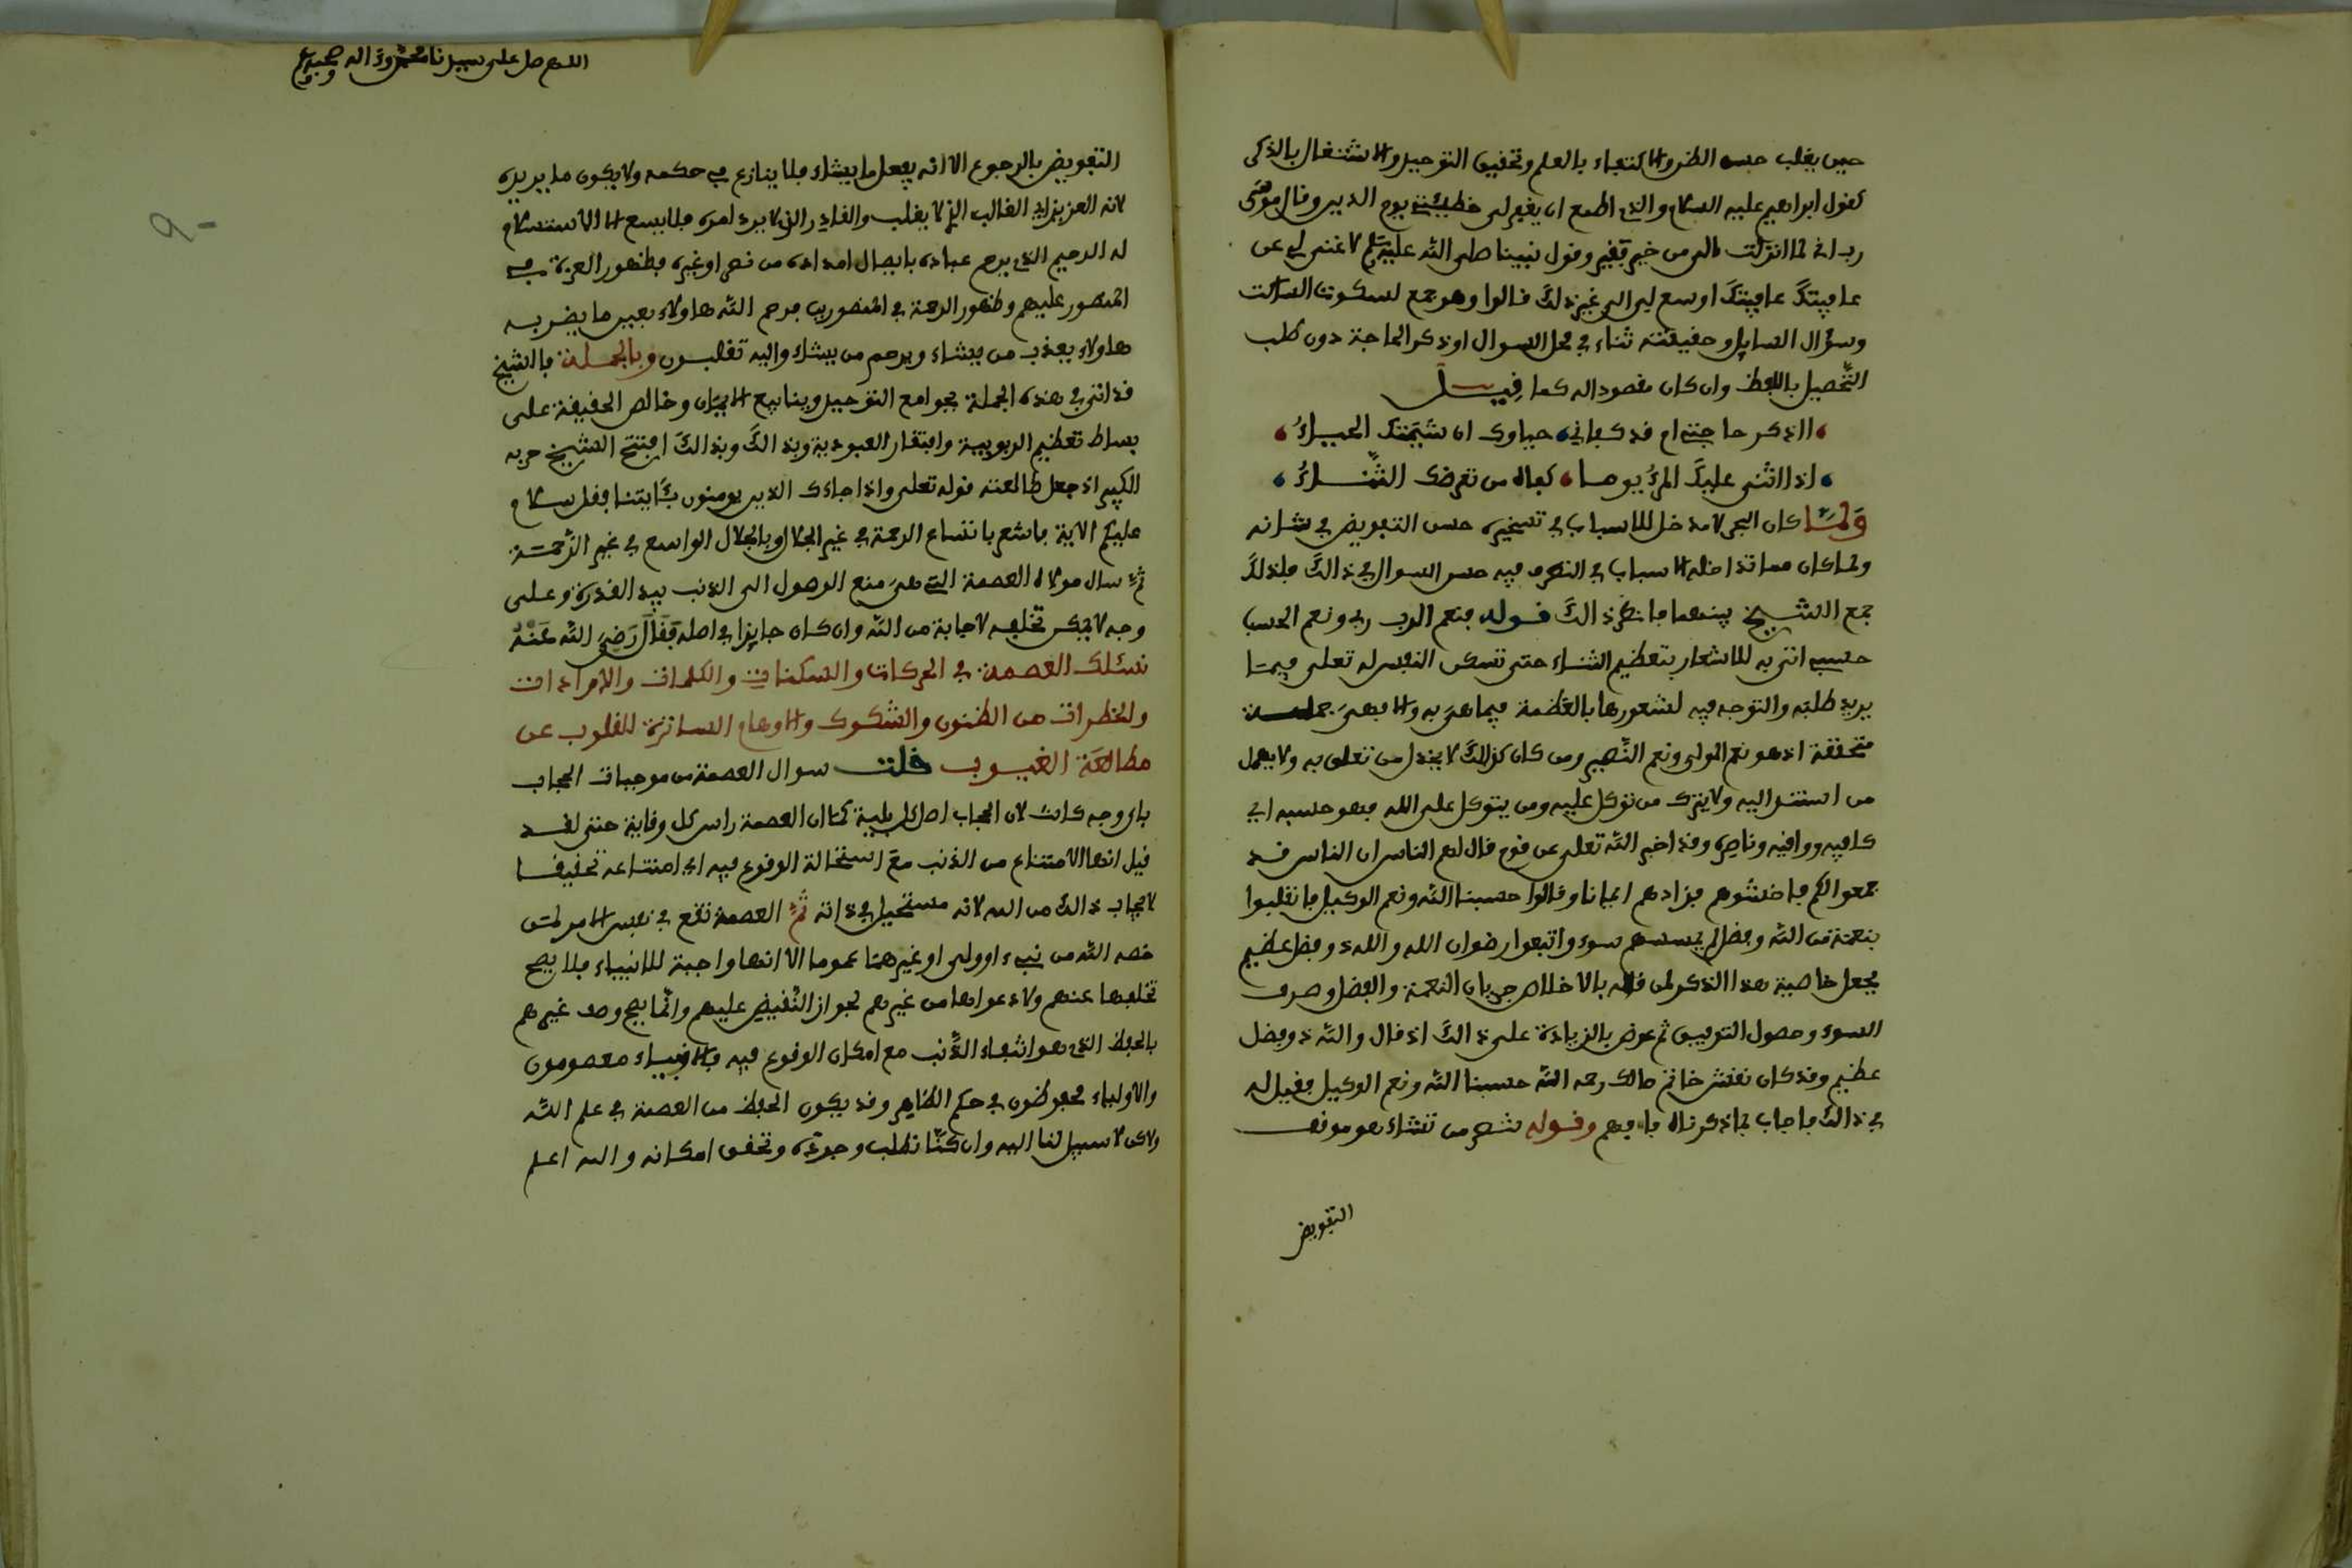 حين يغلب حسن الظن والاكتفاء بالعلم وتحقيق التوحيد والاشتغال بالذكر
كقول ابراهيم عليه السلام والذي اطمع ان يغفر لي خطيئتي يوم الدين وقال موسى
رب اني لما انزلت الي من خير فقير وقول نبينا صلى الله عليه وسلم لا غنى لي عن
عافيتك عافيتك اوسع لي الى غير ذلك قالوا وهو جمع لسكوت الساكت
وسؤال السايل وحقيقته ثناء في محل السوال او ذكر الحاجة دون طلب
التحصيل باللفظ وان كان مقصودا له كما قيل
أاذكر حاجتي ام قد كفاني حياوك ان شيمتك الحياء
اذا اثنى عليك المرء يوما كفاه من تعرضك الثناء
ولما كان البحر لا مدخل للاسباب في تسخيره حسن التفويض في شانه
ولما كان مما تداخله الاسباب في التصرف فيه حسن السوال في ذالك فلذلك
جمع الشيخ بينهما فانظر ذالك قوله فنعم الرب ربي ونعم الحسب
حسبي اتى به للاشعار بتعظيم الثناء حتى تسكن النفس له تعلى فيما
يريد طلبه والتوجه فيه لشعورها بالعظمة فيما هي به والا فهي جملة
متحققة اذ هو نعم المولى ونعم النصير ومن كان كذلك لا يخذل من تعلق به ولا يهمل
من استند اليه ولا يترك من توكل عليه ومن يتوكل على الله فهو حسبه اي
كافيه وواقيه وناصره وقد اخبر الله تعلى عن قوم قال لهم الناس ان الناس قد
جمعوا لكم فاخشوهم فزادهم ايمانا وقالوا حسبنا الله ونعم الوكيل فانقلبوا
بنعمة من الله وفضل لم يمسسهم سوء واتبعوا رضوان الله والله ذو فضل عظيم
فجعل خاصية هذا الذكر لمن قاله بالاخلاص جريان النعمة والفضل وصرف
السوء وحصول التوفيق ثم عوض بالزيادة على ذالك اذ قال والله ذو فضل
عظيم وقد كان نقش خاتم مالك رحمه الله حسبنا الله ونعم الوكيل فقيل له
في ذالك فاجاب بما ذكرناه فافهم وقوله تنصر من تشاء هو موقف
التفويض
اللهم صل على سيدنا محمد وءاله وصحبه
التفويض بالرجوع الا انه يفعل ما يشاء فلا ينازع في حكمه ولا يكون ما يريده
لانه العزيز اي الغالب الذي لا يغلب والقادر الذي لا يرد امره فلا يسع الا الاستسلام
له الرحيم الذي يرحم عباده بايصال امداده من نصر او غيره فظهور العزة في
المنصور عليهم وظهور الرحمة في المنصورين فرحم الله هاولاء بعين ما يضر به
هاولاء يعذب من يشاء ويرحم من يشاء واليه تقلبون وبالجملة فالشيخ
قد اتى في هذه الجملة بجوامع التوحيد وينابيع الايمان وخالص الحقيقة على
بساط تعظيم الربوبية وافتقار العبودية وبذالك وبذالك افتتح الشيخ حزبه
الكبير اذ جعل طالعته قوله تعلى واذا جاءك الذين يومنون بئايتنا فقل سلام
عليكم الاية فاشعر باتساع الرحمة في غير الجلال وبالجلال الواسع في غير الرحمة
ثم سال مولاه العصمة التي هي منع الوصول الى الذنب بيد القدرة وعلى
وجه لا يمكن تخلفه لاجابة من الله وان كان جايزا في اصله فقال رضي الله عنه
نسئلك العصمة في الحركات والسكنات والكلمات والارادات
والخطرات من الظنون والشكوك والاوهام الساترة للقلوب عن
مطالعة الغيوب قلت سوال العصمة من موجبات الحجاب
باي وجه كانت لان الحجاب اصل كل بلية كما ان العصمة راس كل وقاية حتى لقد
قيل انها الامتناع من الذنب مع استحالة الوقوع فيه اي امتناعه تحقيقا
لايجاب ذالك من الله لانه مستحيل في ذاته ثم العصمة تقع في نفس الامر لمن
خصه الله من نبيء او ولي او غيرهما عموما الا انها واجبة للانبياء فلا يصح
تخلفها عنهم ولا دعواها من غيرهم لجواز النقيض عليهم وانما يصح وصف غيرهم
بالحفظ الذي هو انتفاء الذنب مع امكان الوقوع فيه فالانبياء معصومون
والاولياء محفوظون في حكم الظاهر وقد يكون الحفظ من العصمة في علم الله
ولاكن لا سبيل لنا اليه وان كنا نطلب وجوده وتحقق امكانه والله اعلم